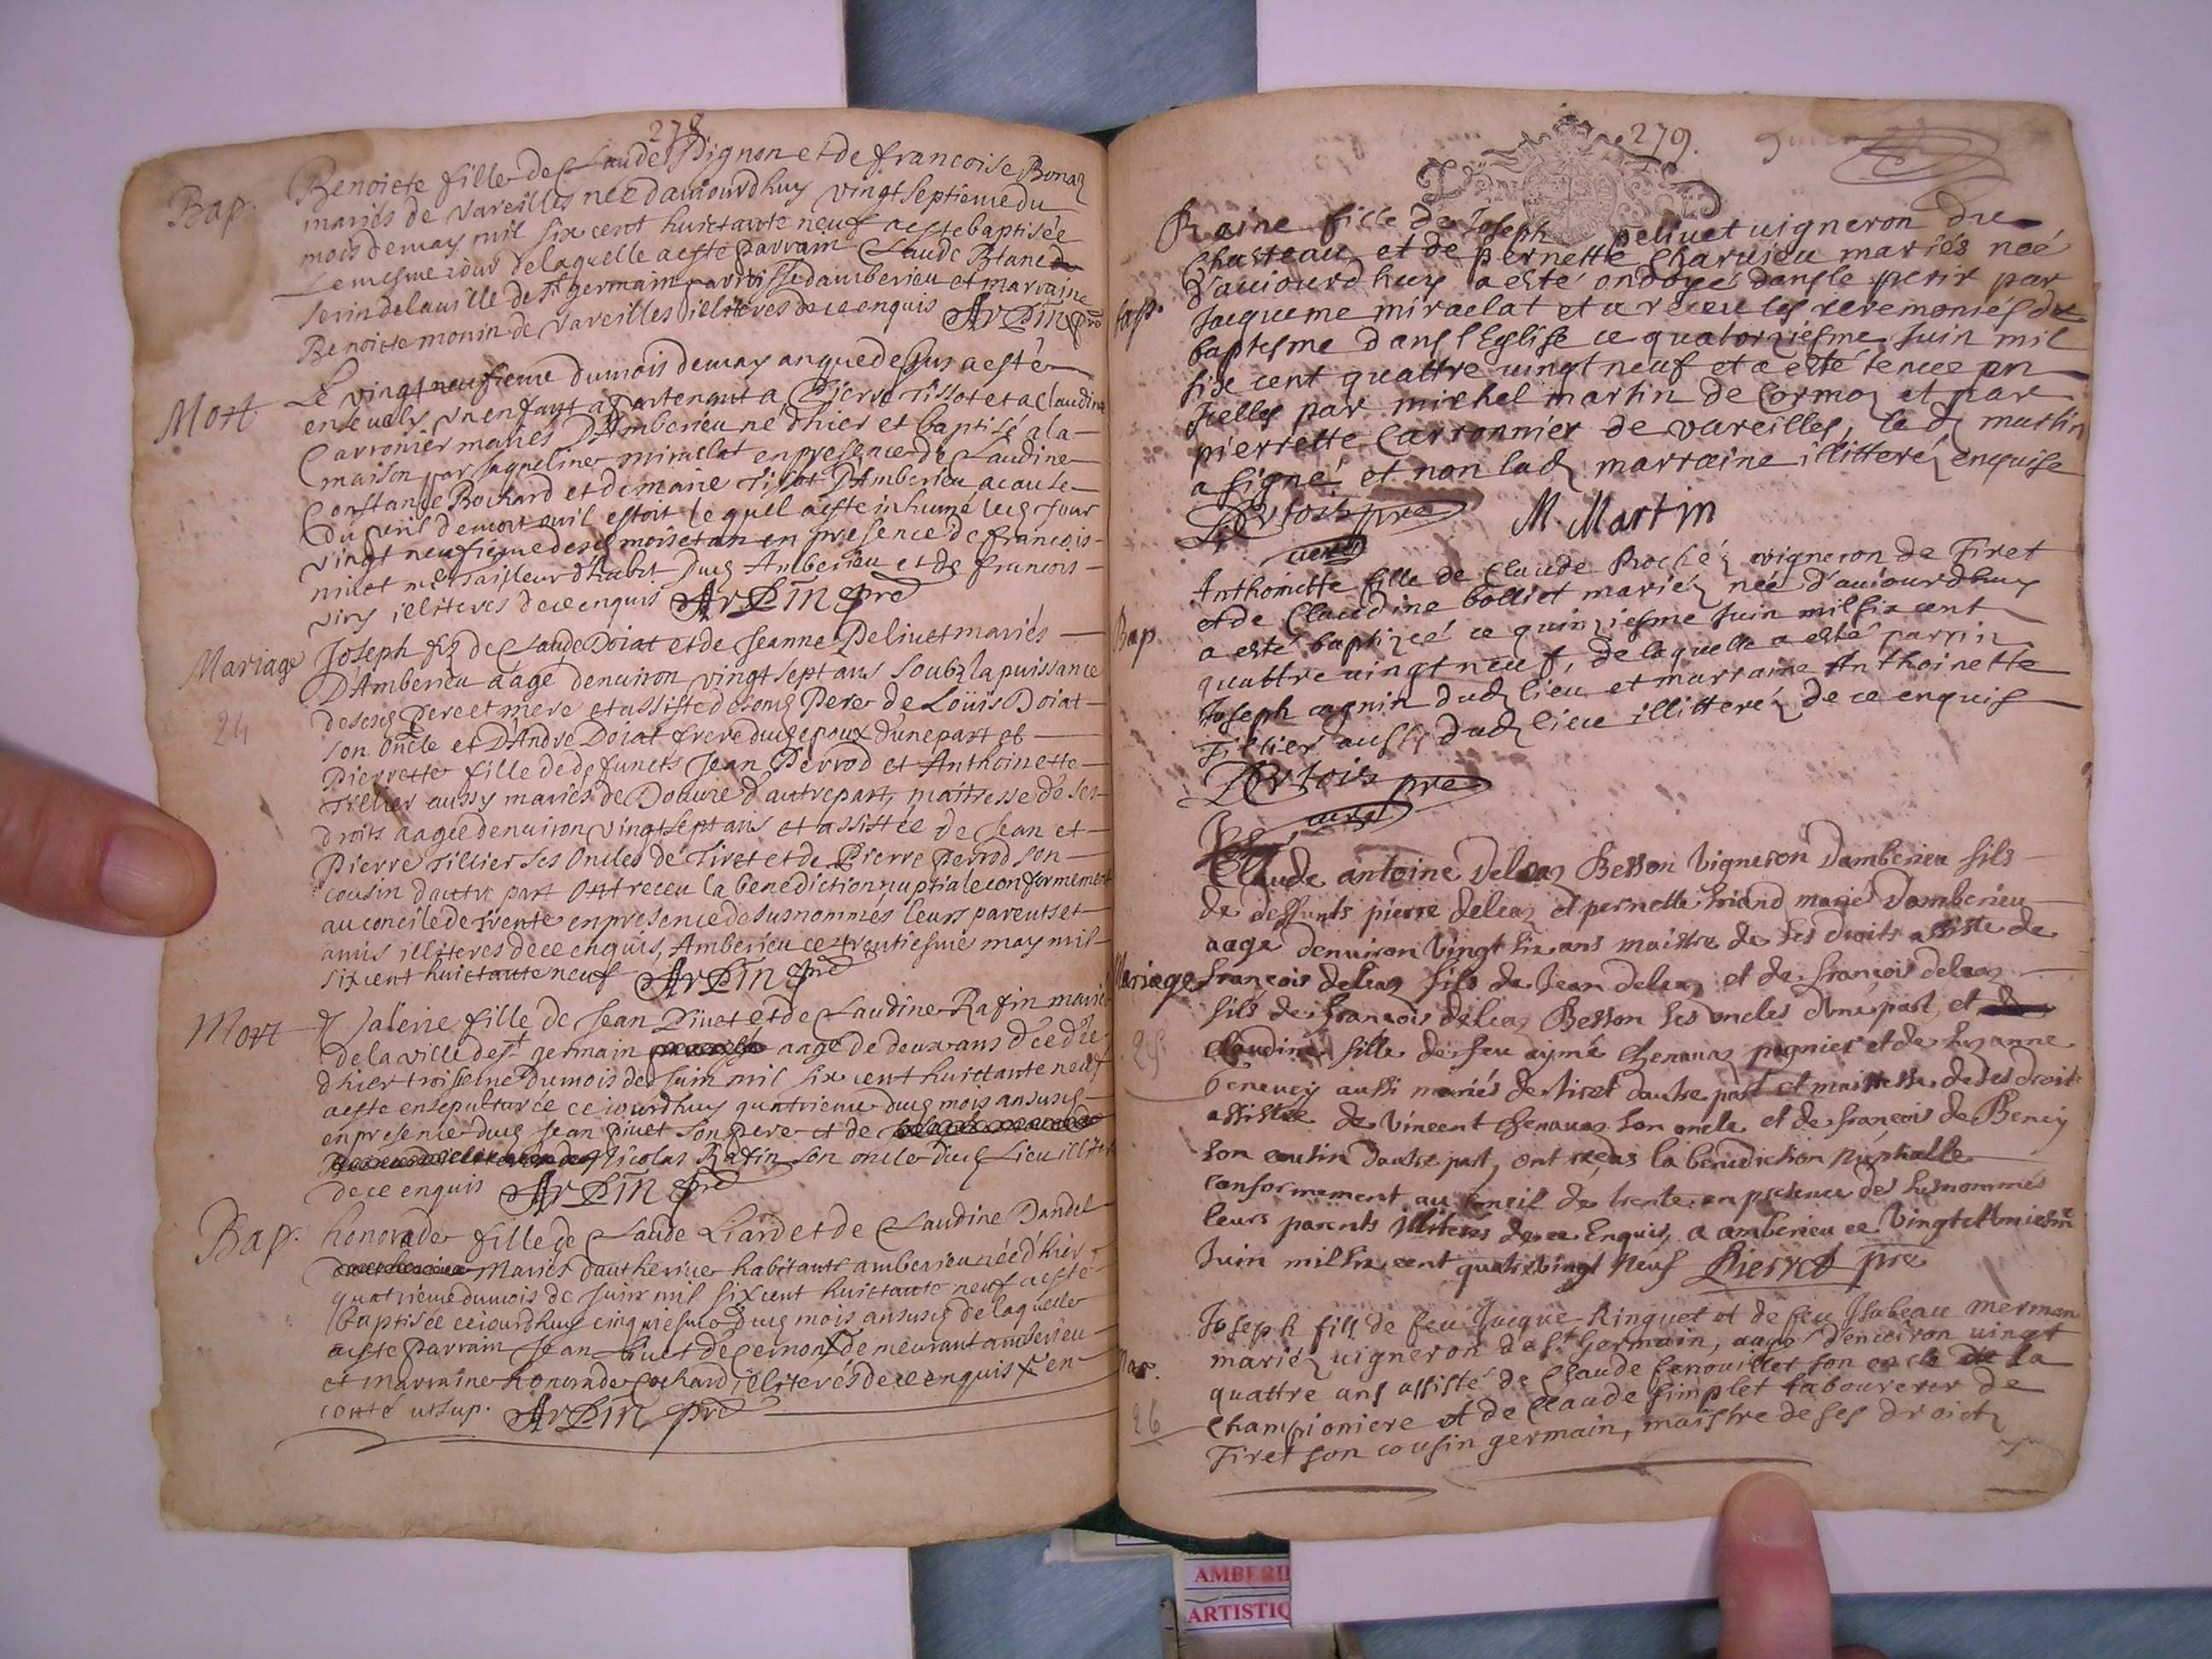 278
Bap. Benoiete fille de Claude Pignon et de francoise Bonaz
mariés de Vareilles née daujourdhuy vingtseptieme du
mois de may mil six cent huictante neuf a esté baptisée
Le mesme jour de laquelle a esté parrain Claude Blanc
serin de la ville de St germain parroisse damberieu et marraine
Benoiete monin de Vareilles illiteres de ce enquis Arpin pre
Mort Le vingt neufieme du mois de may an que dessus a esté
ensevely un enfant apartenant a Pierre Tissot et a Claudine
Carronier mariés D'Amberieu né d'hier et baptisé a la
maison par Jaqueline miraclat en presence de Claudine
Constance Bochard et de marie Tissot D'Amberieu a cause
Du peril de mort ou il estoit lequel a este inhumé led jour
vingt neufieme desd mois et an en presence de francois
minet me tailleur d'habit Dud Amberieu et de francois
viry illiteres de ce enquis Arpin pre
Mariage Joseph fz de Claude Doiat et de Jeanne Pelluet mariés
D'Amberieu aagé denviron vingt sept ans soubz la puissance
de sesd Pere et mere et assisté de sond Pere de Loüis Doiat
24
son oncle et D'André Doiat frere dud epoux d'une part et
Pierrette fille de defuncts Jean Perrod et Anthoinette
Tillier aussy mariés de Douvre d'autre part, maitresse de ses
droits aagée denviron vingt sept ans et assistée de Jean et
Pierre Tillier ses oncles de Tiret et de Pierre Perrod son
cousin dautre part ont receu la benediction nuptiale conformement
au concile de trente en presence des susnommés leurs parents et
amis illiteres de ce enquis, Amberieu ce trentiesme may mil
six cent huictante neuf Arpin pre
Mort fille de Jean Pinet et de Claudine Rafin mariés
de la ville de St germain aagé de deux ans decedée
d'hier troisieme du mois de Juin mil six cent huictante neuf
a esté ensepulturée ce jourdhuy quatrieme dud mois an susd
en presence dud Jean pinet son pere et de
Nicolas Rafin son oncle dud Lieu illiter
de ce enquis Arpin pre
Bap. honorade fille de Claude Liard et de Claudine Dandel
Mariés dautherive habitants amberieu née d'hier
quatrieme du mois de Juin mil six cent huictante neuf a esté
baptisée cejourdhuy cinquiesme dud mois an susd de laquelle
a esté Parrain Jean huet de Cernon demeurant amberieu
et marraine honorade Cochard illiterés de ce enquis en
conté ut sup. Arpin pre
279.
Raine fille de Joseph pelluet vigneron du
Chasteau et de pernette Charvieu mariés neé
d'aujourdhuy a esté ondoyé dans le peril par
Bap. Jaqueme miraclat et a receu les ceremonies de
baptesme dans l'Eglise ce quatorziesme Juin mil
six cent quattre vingt neuf et a esté tenue en
icelles par michel martin de Cormoz et par
pierrette Carronnier de vareilles, le d martin
a signé et non lad marraine illitteréz enquise
Dertois pre M. Martin
curé
Anthoinette fille de Claude Roche vigneron de Tiret
et de Claudine bolliet mariéz née d'aujourdhuy
Bap a esté baptizeé ce quinziesme Juin mil six cent
quattre vingt neuf, de laquelle a esté parrin
Joseph cagnin dud lieu et marraine Anthoinette
Tillier aussy dud lieu illitteréz de ce enquis
Dertois pre
curé
Claude antoine deleaz Besson vigneron damberieu fils
de deffunts pierre deleaz et pernette Friand mariés damberieu
aagé denviron vingt six ans maistre de ses droits assisté de
Mariage françois deleaz fils de Jean deleaz et de françois deleaz
fils de françois deleaz Besson ses oncles d'une part, et
25 Claudine fille de feu aymé Chenavaz pignier et de Suzanne
Genevey aussi mariés de tiret dautre part et maistresse de ses droit
assistée de vincent Chenavaz son oncle et de françois de Beney
son cousin dautre part, ont receus la benediction nuptialle
conformement au concil de trente en presence des susnommés
leurs parents illiteres de ce Enquis, a amberieu ce vingt et uniesme
Juin mil six cent quatrevingt neuf Pierret pre
Joseph fils de feu Jacque Ringuet et de feu Isabeau merman
mariéz vigneron de St Germain, aagé d'environ vingt
Mar. quattre ans assisté de Claude fenouillet son oncle de la
Championiere et de Claude simplet laboureur de
26 Tiret son cousin germain, maistre de ses droictz
AMBERI
ARTISTIQ